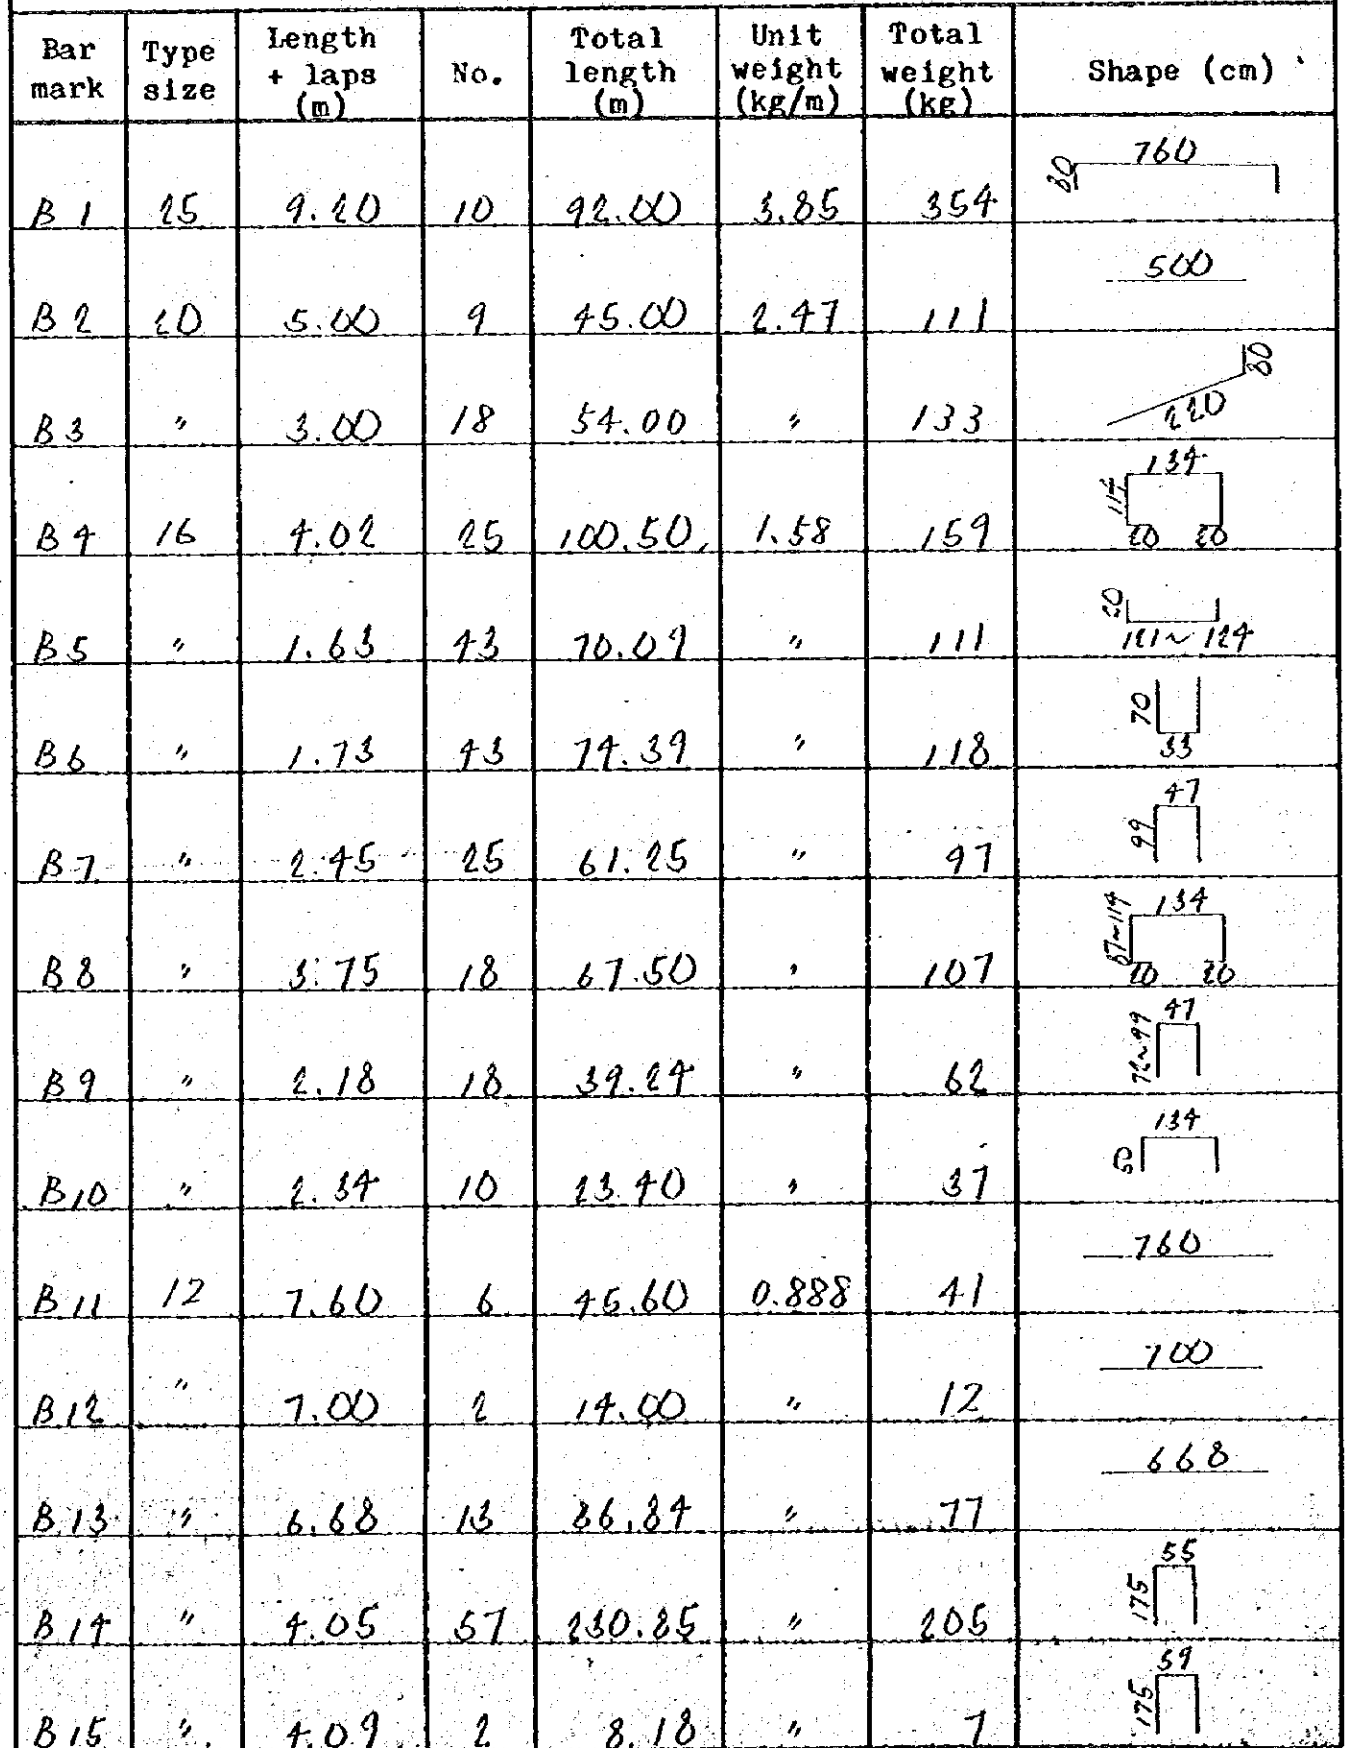 Bar mark | Type size | Length + laps (m) | No. | Total length (m) | Unit weight (kg/m) | Total weight (kg) | Shape (cm)
B 1 | 25 | 9.20 | 10 | 92.00 | 3.85 | 354 | 80 760
B 2 | 20 | 5.00 | 9 | 45.00 | 2.47 | 111 | 500
B 3 | " | 3.00 | 18 | 54.00 | " | 133 | 220 80
B 4 | 16 | 4.02 | 25 | 100.50 | 1.58 | 159 | 134 114 20 20
B 5 | " | 1.63 | 43 | 70.09 | " | 111 | 20 121~124
B 6 | " | 1.73 | 43 | 74.39 | " | 118 | 70 33
B 7 | " | 2.45 | 25 | 61.25 | " | 97 | 47 99
B 8 | " | 3.75 | 18 | 67.50 | " | 107 | 134 87~114 20 20
B 9 | " | 2.18 | 18 | 39.24 | " | 62 | 47 72~99
B 10 | " | 2.34 | 10 | 23.40 | " | 37 | 134
B 11 | 12 | 7.60 | 6 | 45.60 | 0.888 | 41 | 760
B 12 | " | 7.00 | 2 | 14.00 | " | 12 | 700
B 13 | " | 6.68 | 13 | 86.84 | " | 77 | 668
B 14 | " | 4.05 | 57 | 230.85 | " | 205 | 55 175
B 15 | " | 4.09 | 2 | 8.18 | " | 7 | 59 175